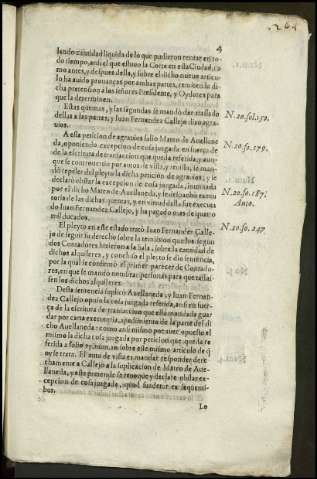 4
lando cantidad liquida de lo que pudieron rentar en todo
tiempo, assi el que estuuo la Corte en esta Ciudad, co
mo antes, y despues della, y sobre el dicho nueuo articu
lo ha auido prouanças por ambas partes, remitese la di
cha pretension a los señores Presidente, y Oydores para
que la determinen.
Estas quintas, y las segundas se mandò dar traslado
dellas a las partes, y Iuan Fernandez Callejo dixo agra
uios.
A esta peticion de agrauios salio Mateo de Auellane
da, oponiendo excepcion de cosa juzgada en fuerça de
de la escritura de transaccion que queda referida, y aun
que se contradixo por autos de vista, y reuista, se man
dò repeler del pleyto la dicha peticion de agrauios; y se
declarò obstar la excepcion de cosa juzgada, intentada
por el dicho Mateo de Auellaneda, se despachò executo
ria de las dichas quintas, y en virtud della fue executa
do Iuan Fernandez Callejo, y ha pagado mas de quatro
mil ducados.
El pleyto en este estado tratò Iuan Fernandez Calle
jo de seguir su derecho sobre la remission que los segun
dos Contadores hizieron a la Sala, sobre la cantidad de
dichos alquileres, y concluso el pleyto se dio sentencia,
por la qual se confirmò el primer parecer de Contado-
res, en que se mandò nombrar personas para que tassas-
sen los dichos alquileres.
Desta sentencia suplicò Auellaneda, y Iuan Fernan-
dez Callejo opuso la cosa juzgada referida, assi en fuer-
ça de la escritura de transaccion que està mandada guar
dar por carta executoria, a pedimento de la parte del di
cho Auellaneda: como assi mismo por auer opuesto el
mismo la dicha cosa juzgada por peticion que queda re
ferida a folio 179. num. 20. sobre este mismo articulo de q̃
oy se trata. El auto de vista es, mandar responder dere-
chamente a Callejo a la suplicacion de Mateo de Aue-
llaneda, y este pretende se reuoque y declare obstar ex-
cepcion de cosa juzgada, quod fundetur ex sequenti-
bus.
Lo
N. 20. fol. 152.
N. 20. fo. 179.
N. 20. fo. 187.
N. 20. fo. 247